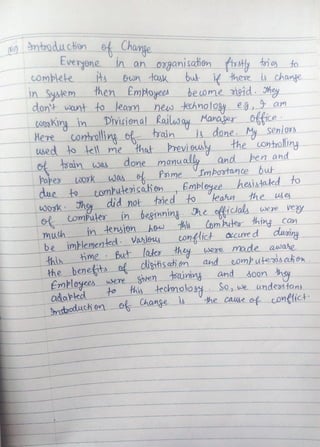 Introduction of Change
Everyone in an organisation firstly tries to
complete its own task but if there is change
in system then Employees become rigid. They
don't want to learn new technology e.g, I am
working in Divisional Railway Manager office.
Here controlling of train is done. My seniors
used to tell me that Previously the controlling
of train was done manually and pen and
Paper work was of Prime Importance but
due to computerisation, Employee hesistated to
work. They did not tried to learn the uses
of Computer in beginning. The officials were very
much in tension how this Computer thing can
be implemented. Various conflict occured during
this time. But later they were made aware
the benefits of digitisation and computerisation
Employees were given training and soon they
adapted to this technology. So, we understand
Introduction of Change is the cause of conflict.